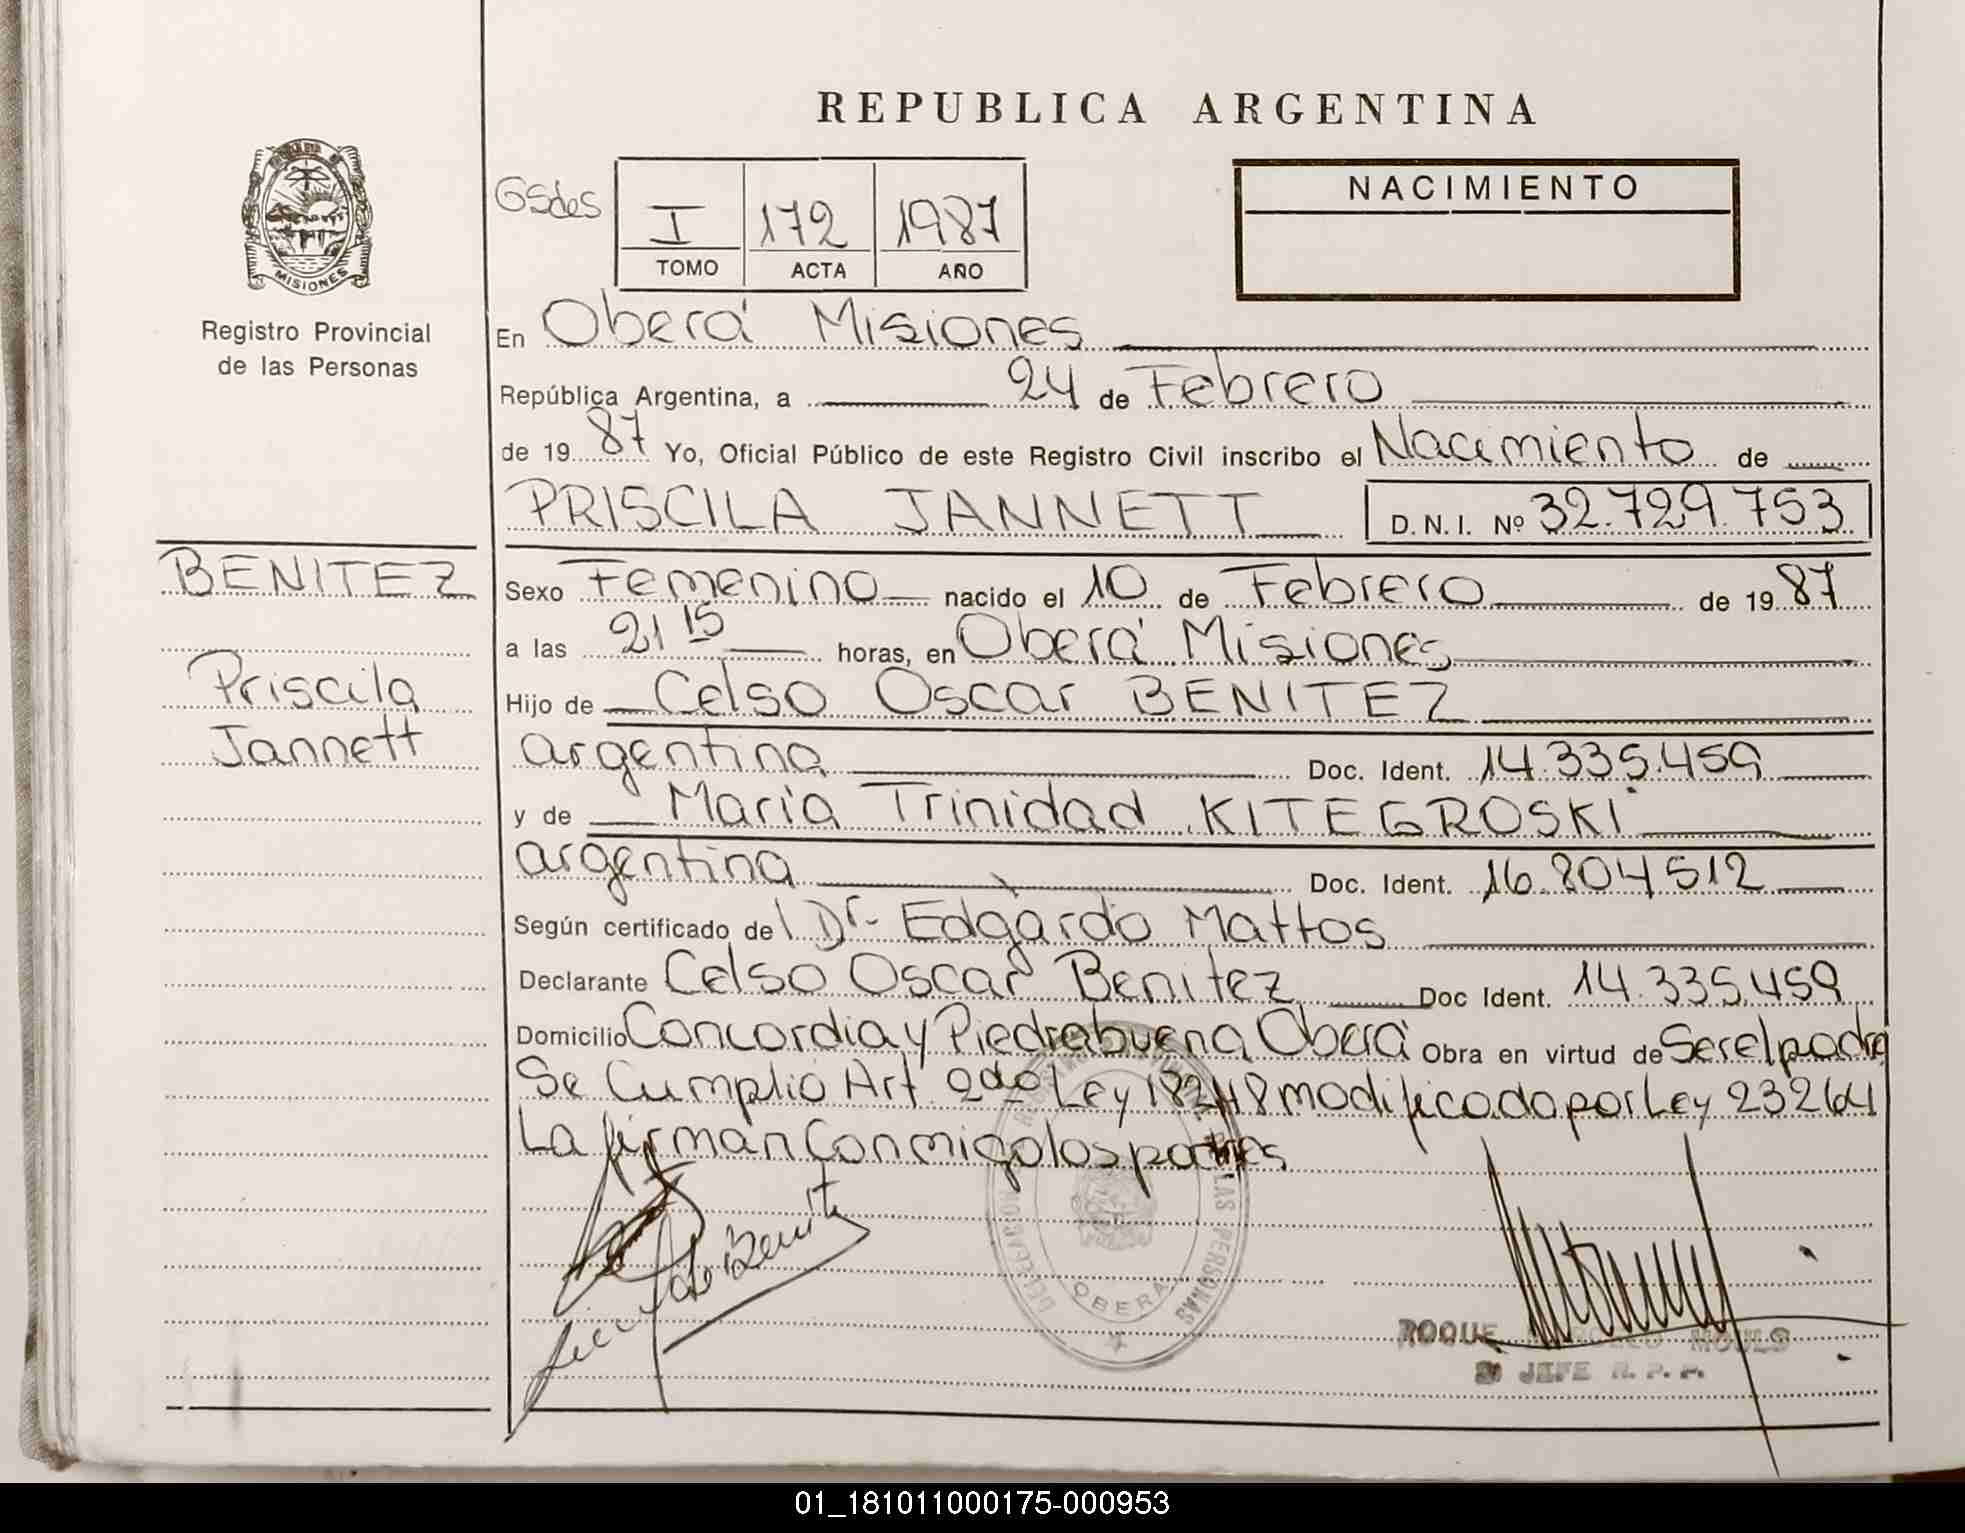 REPUBLICA ARGENTINA
MISIONES
Registro Provincial
de las Personas
GSdes
I 172 1987
TOMO ACTA AÑO
NACIMIENTO
En Oberá Misiones
República Argentina, a 24 de Febrero
de 1987 Yo, Oficial Público de este Registro Civil inscribo el Nacimiento de
PRISCILA JANNETT D.N.I. Nº 32.729.753
BENITEZ
Priscila
Jannett
Sexo Femenino nacido el 10 de Febrero de 1987
a las 21 15 horas, en Oberá Misiones
Hijo de Celso Oscar BENITEZ
argentina Doc. Ident. 14.335.459
y de María Trinidad KITEGROSKI
argentina Doc. Ident. 16.804512
Según certificado del Dr. Edgardo Mattos
Declarante Celso Oscar Benitez Doc Ident. 14.335.459
Domicilio Concordia y Piedrabuena Oberá Obra en virtud de Ser el padre
Se Cumplio Art 2do Ley 18248 modificado por Ley 23264
La firman Conmigo los padres
Benitez
DELEGACION
LAS PERSONAS
OBERA
ROQUE MOULS
JEFE R. P. P.
01_181011000175-000953